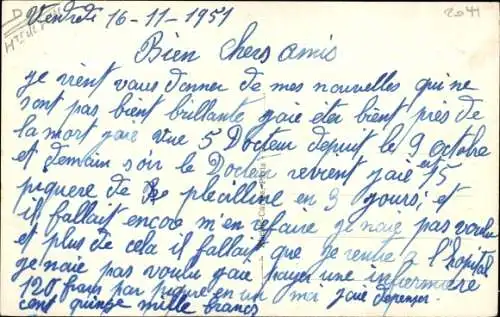 Vendredi 16-11-1951
Bien chers amis
je vient vous donner de mes nouvelles qui ne
sont pas bient brillante j'aie éter bient près de
la mort j'aie vue 5 Docteur depuit le 9 octobre
et demain soir le Docteur revient j'aie eut 15
piquere de plecilline en 3 jours; et
il fallait encore m'en refaire je n'aie pas voulu
et plus de cela il fallait que je rentre à l'hopital
je n'aie pas voulu j'aie payer une infermière
120 frans par piquere en un moi j'aie dépenser
cent quinze mille francs